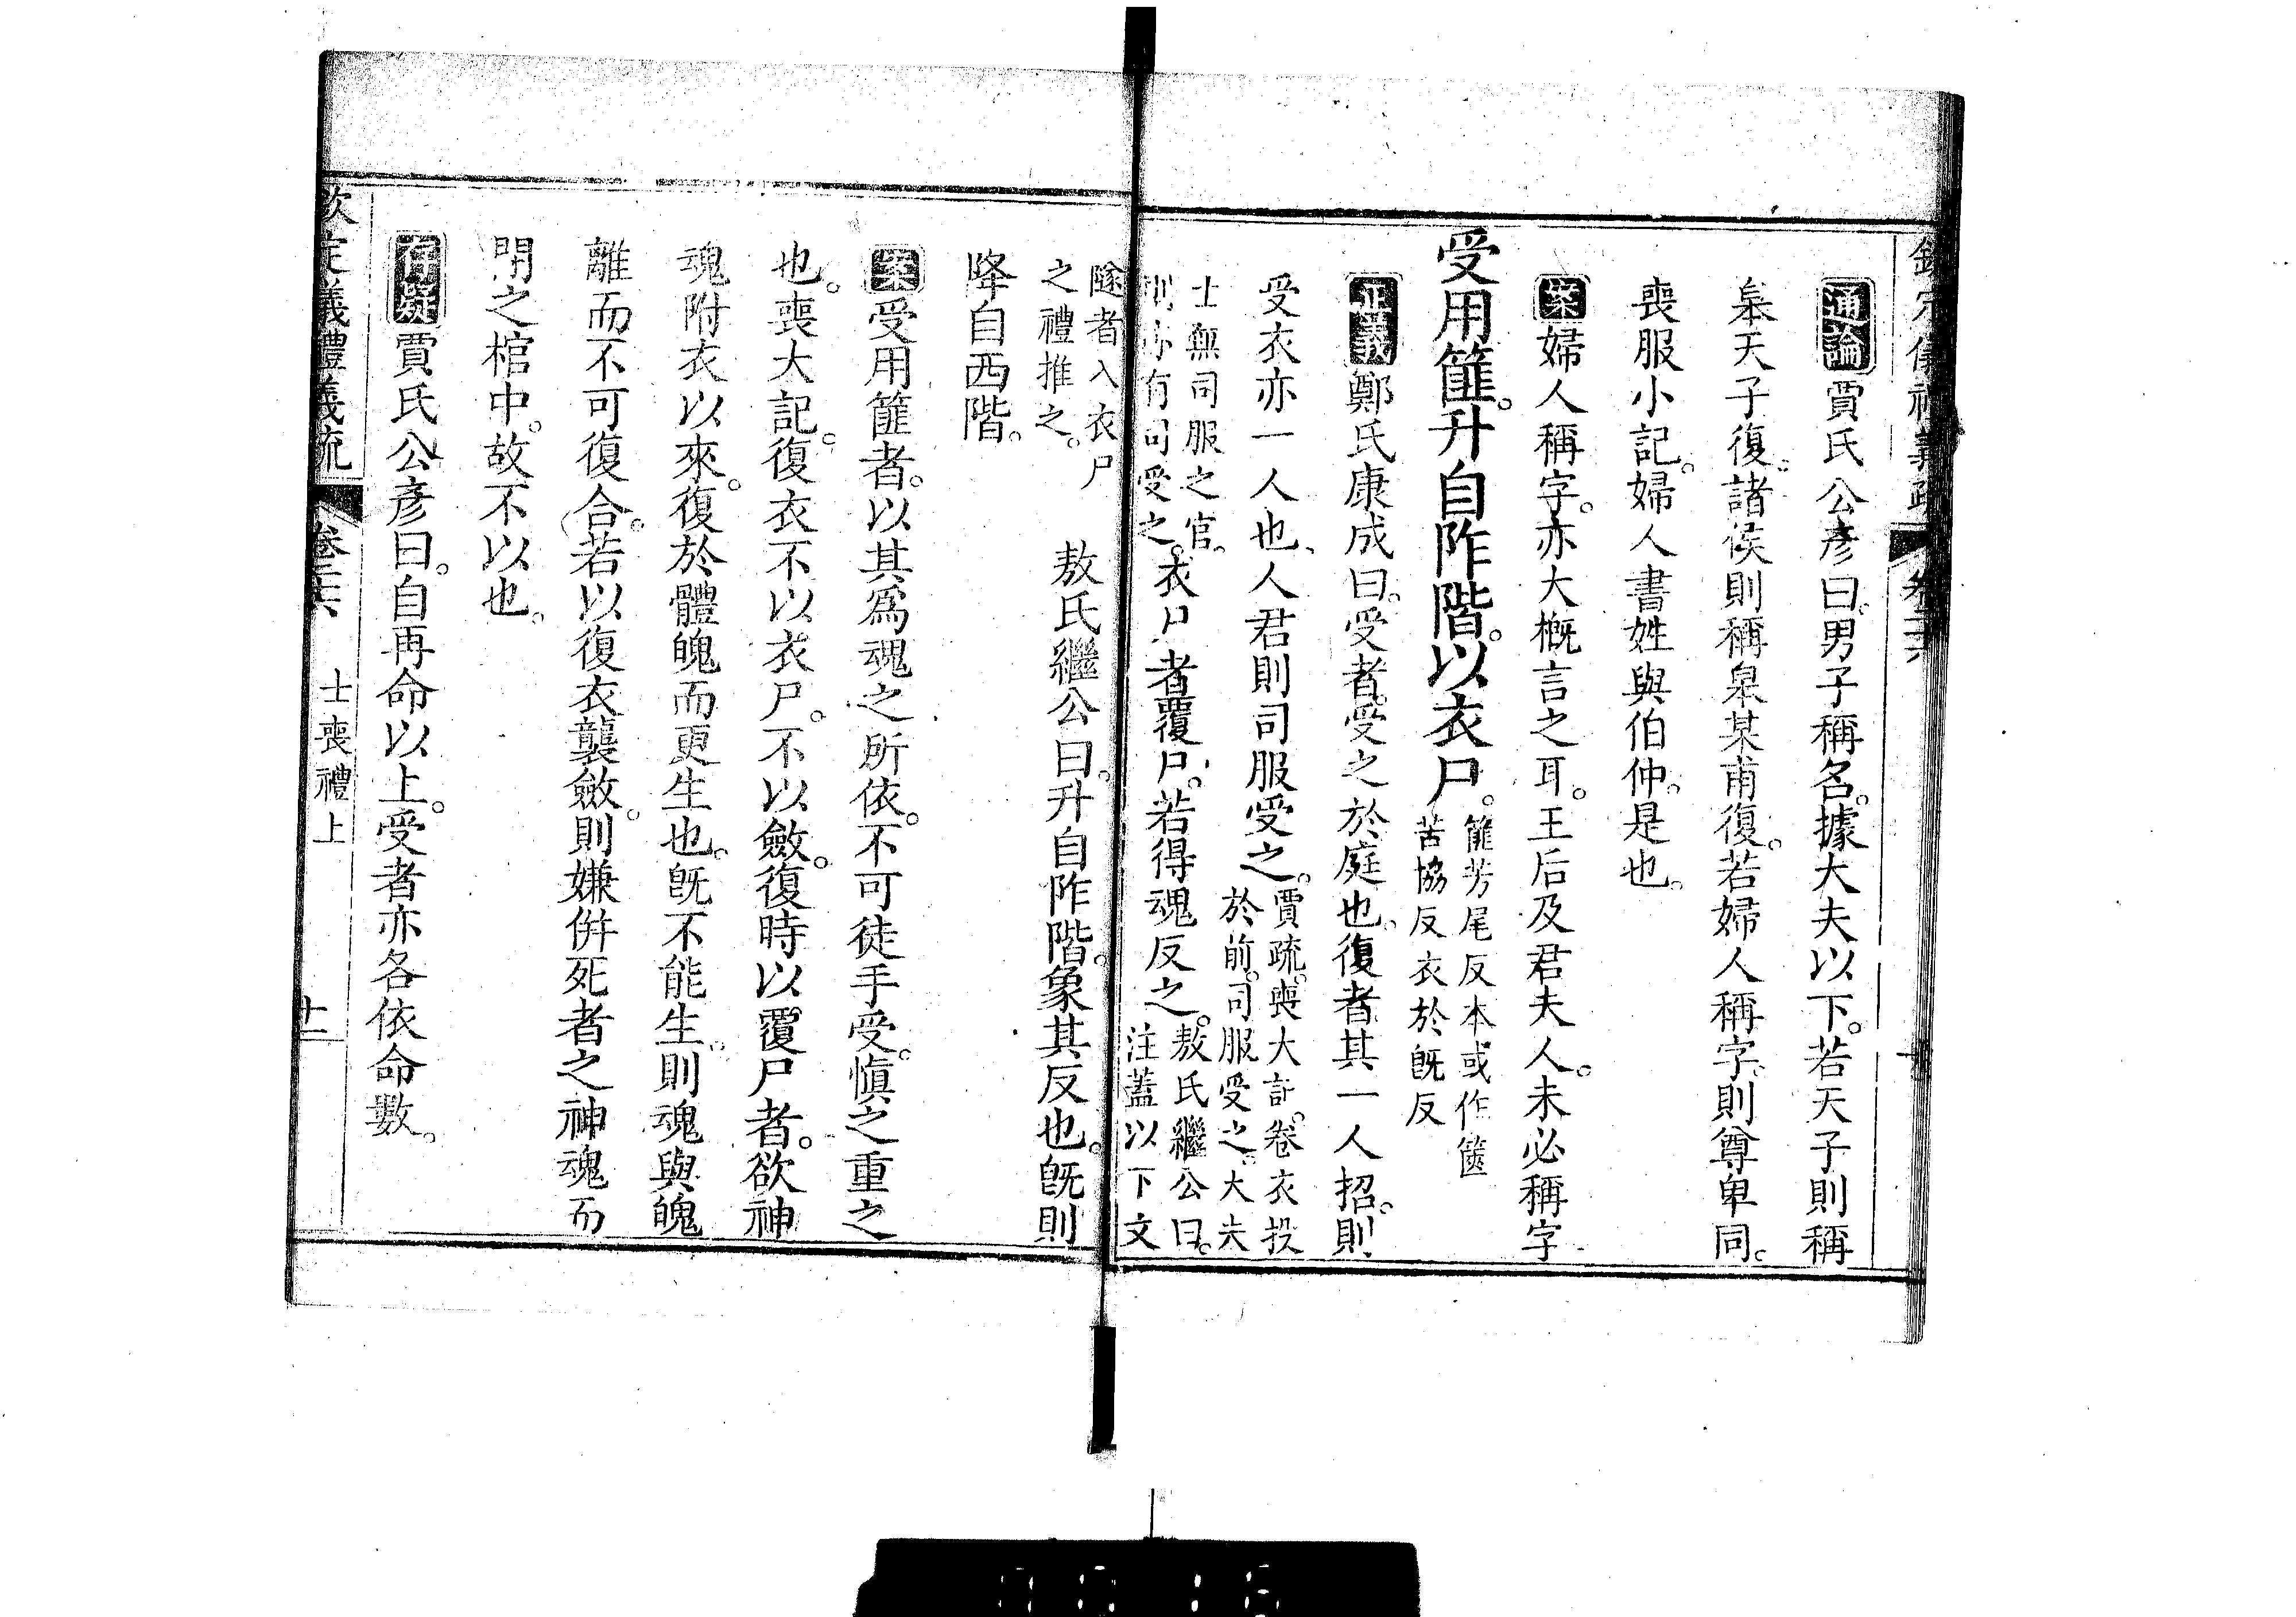 欽定儀禮義疏 卷二十六
通論賈氏公彥曰男子稱名據大夫以下若天子則稱
皋天子復諸侯則稱皋某甫復若婦人稱字則尊卑同
喪服小記婦人書姓與伯仲是也
案婦人稱字亦大概言之耳王后及君夫人未必稱字
受用篚升自阼階以衣尸
篚芳尾反本或作篋
苦協反衣於旣反
正義鄭氏康成曰受者受之於庭也復者其一人招則
受衣亦一人也人君則司服受之
賈疏喪大記卷衣投
於前司服受之大夫
士無司服之官
則亦有司受之
衣尸者覆尸若得魂反之
敖氏繼公曰
注蓋以下文
隧者入衣尸
之禮推之
敖氏繼公曰升自阼階象其反也旣則
降自西階
案受用篚者以其爲魂之所依不可徒手受愼之重之
也喪大記復衣不以衣尸不以斂復時以覆尸者欲神
魂附衣以來復於體魄而更生也旣不能生則魂與魄
離而不可復合若以復衣襲斂則嫌倂死者之神魂而
閉之棺中故不以也
存疑賈氏公彥曰自再命以上受者亦各依命數
欽定儀禮義疏 卷二十六 士喪禮上 十二